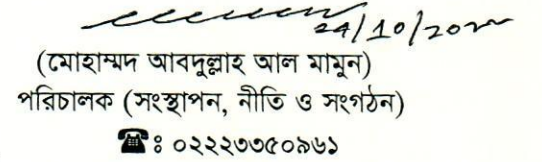 (মোহাম্মদ আবদুল্লাহ আল মামুন)
পরিচালক (সংস্থাপন, নীতি ও সংগঠন)
☎ঃ ০২২২৩৩৫০৯৬১